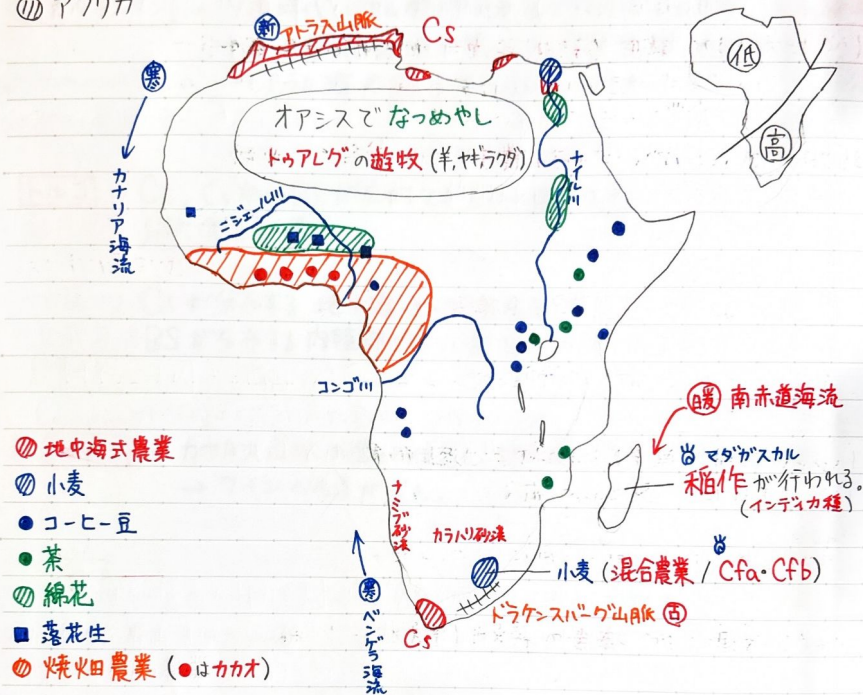 アフリカ
新 アトラス山脈
Cs
低
高
寒
カナリア海流
オアシスで なつめやし
トゥアレグの遊牧 (羊,ヤギ,ラクダ)
ナイル川
ニジェール川
コンゴ川
暖 南赤道海流
マダガスカル
稲作が行われる。
(インディカ種)
ナミブ砂漠
カラハリ砂漠
小麦 (混合農業 / Cfa・Cfb)
ドラケンスバーグ山脈 古
Cs
寒
ベンゲラ海流
地中海式農業
小麦
コーヒー豆
茶
綿花
落花生
焼畑農業 (●はカカオ)